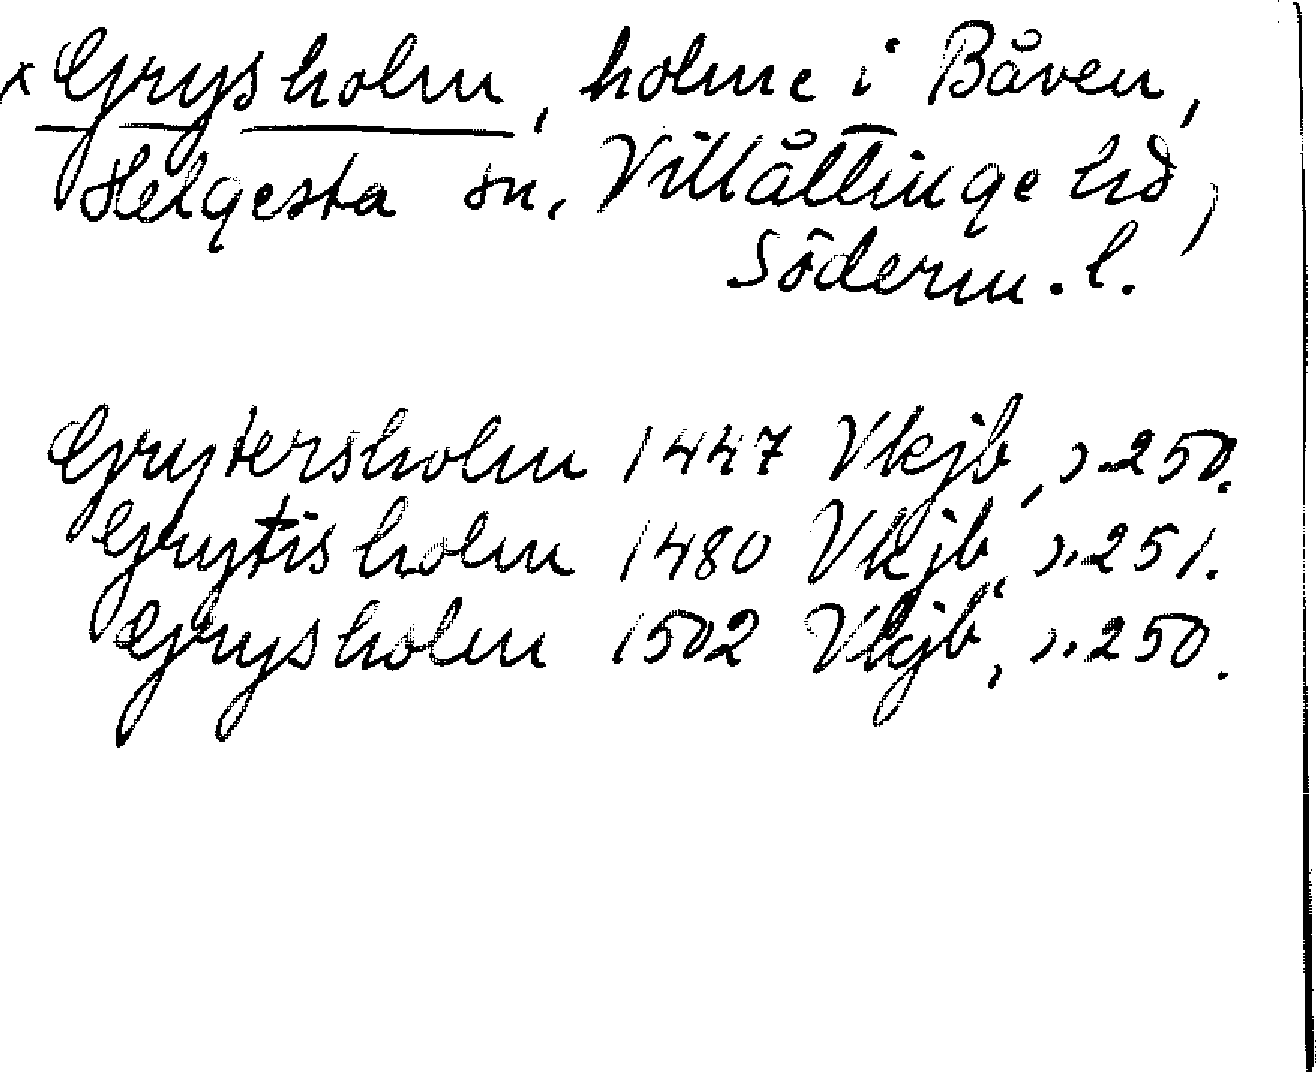 x Grysholm, holme i Båven,
Helgesta sn, Villåttinge hd,
Söderm.l.
Grytersholm 1447 Vkjb, s. 250.
Grytisholm 1480 Vkjb, s. 251.
Grysholm 1502 Vkjb, s. 250.